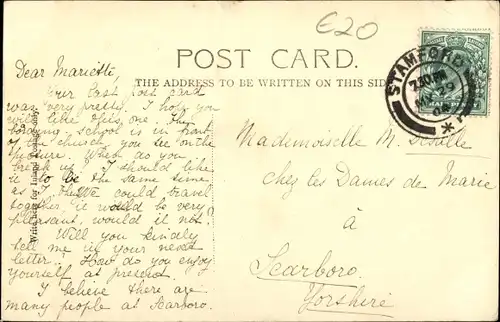 €20
POST CARD.
THE ADDRESS TO BE WRITTEN ON THIS SIDE
STAMFORD
7.30 PM
29
Dear Mariette,
Your last post card
was very pretty. I hope you
will like this one. The
boarding school is in front
of the church you see on the
picture. When do you
break up? I should like
it to be the same time
as I. We could travel
together, it would be very
pleasant, would it not?
Will you kindly
tell me in your next
letter? How do you enjoy
yourself at present.
I believe there are
many people at Scarboro.
Write here for Inland Postage only.
Mademoiselle M.
Chez les Dames de Marie
à
Scarboro.
Yorshire